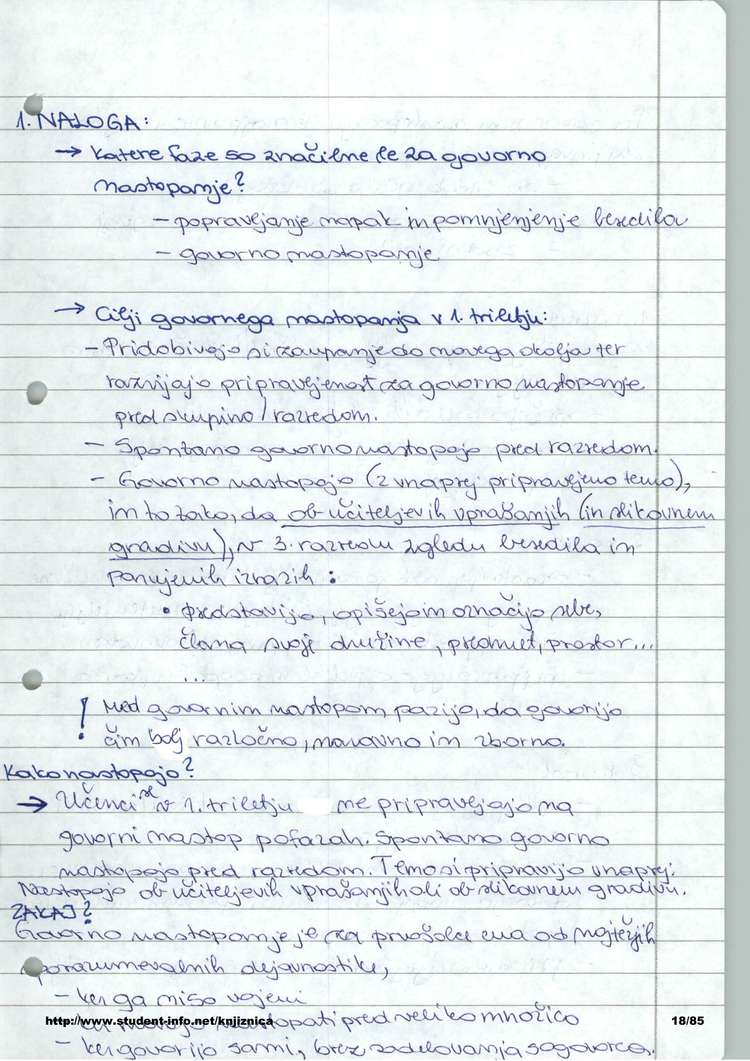 1. NALOGA:
→ Katere faze so značilne le za govorno
nastopanje?
– popravljanje napak in pomnjenjenje besedila
– govorno nastopanje
→ Cilji govornega nastopanja v 1. triletju:
– Pridobivajo si zaupanje do novega okolja ter
razvijajo pripravljenost za govorno nastopanje
pred skupino / razredom.
– Spontano govorno nastopajo pred razredom.
– Govorno nastopajo (z vnaprej pripravljeno temo),
in to tako, da ob učiteljevih vprašanjih (in slikovnem
gradivu), v 3. razredu zgledu besedila in
ponujenih izrazih :
• predstavijo, opišejo in označijo sebe,
člana svoje družine, predmet, prostor...
...
! Med govornim nastopom pazijo, da govorijo
čim bolj razločno, naravno in zborno.
Kako nastopajo?
→ Učenci se v 1. triletju ne pripravljajo na
govorni nastop po fazah. Spontano govorno
nastopajo pred razredom. Temo si pripravijo vnaprej.
Nastopajo ob učiteljevih vprašanjih ali ob slikovnem gradivu.
ZAKAJ?
Govorno nastopanje je za prvošolce ena od najtežjih
sporazumevalnih dejavnosti ke,
– ker ga niso vajeni
nastopati pred veliko množico
– ker govorijo sami, brez sodelovanja sogovorca.
http://www.student-info.net/knjiznica
18/85